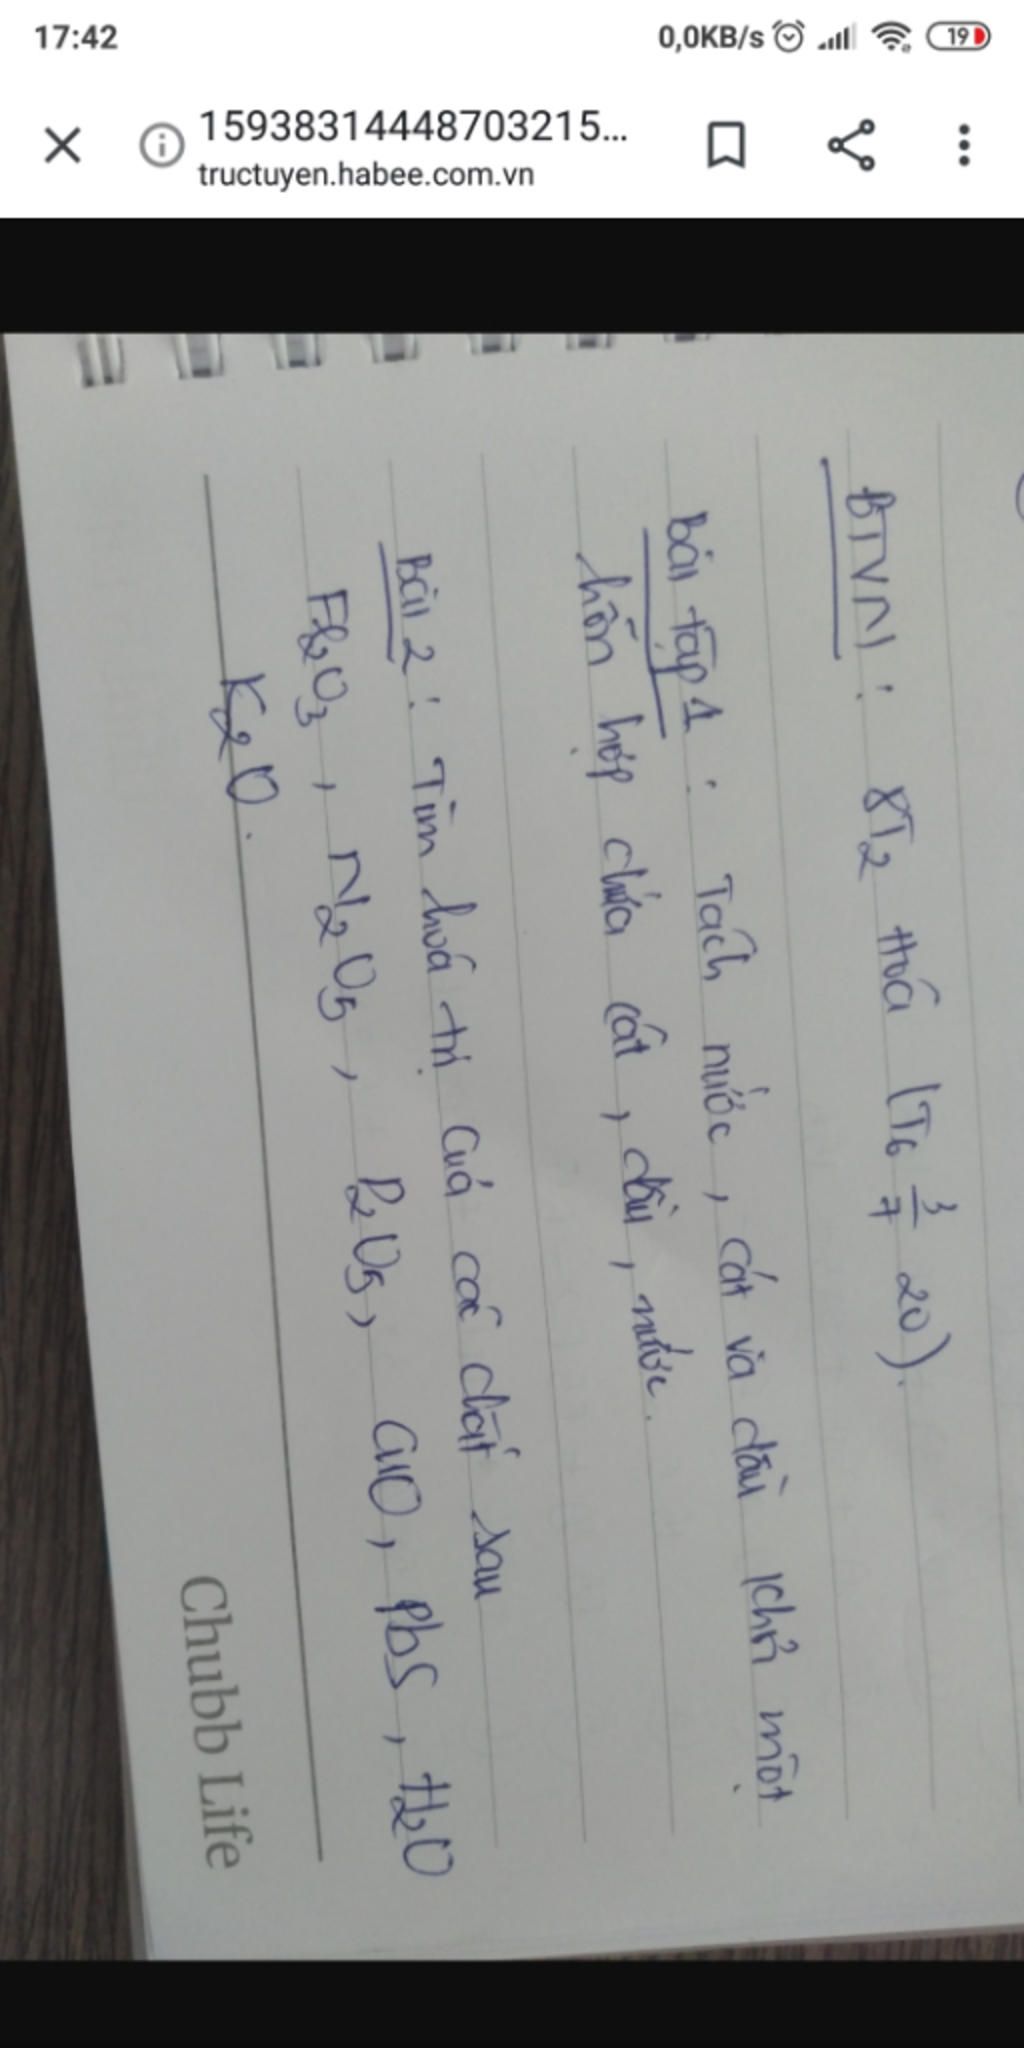 17:42
0,0KB/s
19
15938314448703215...
tructuyen.habee.com.vn
BTVN : 8T2 Hoá (T6 3/7 20).
Bài tập 1 : Tách nước, cát và dầu khỏi một
hỗn hợp chứa cát, dầu, nước.
Bài 2 : Tìm hoá trị của các chất sau
Fe2O3, N2O5, P2O5, CuO, PbS, H2O
K2O.
Chubb Life